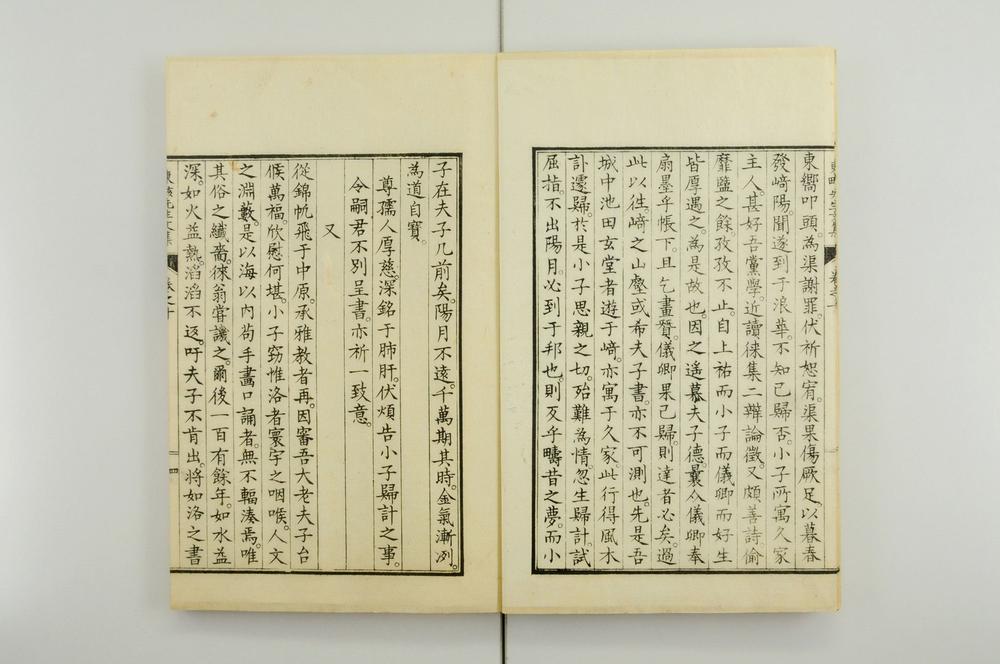 東嚮叩頭。為渠謝罪。伏祈恕宥。渠果傷厥足。以暮春
發﨑陽。聞遂到于浪華。不知已歸否。小子所寓久家
主人。甚好吾黨學。近讀徠集二辯論徵。又頗善詩。偷
靡鹽之餘。孜孜不止。自上祐而小子而儀卿而好生
皆厚遇之。為是故也。因之遙慕夫子德。曩以儀卿奉
扇墨乎帳下。且乞畫贊。儀卿果已歸。則達者必矣。過
此以徃。﨑之山壑或希夫子書。亦不可測也。先是吾
城中池田玄堂者遊于﨑。亦寓于久家。此行得風木
訃遽歸。於是小子思親之切。殆難為情。忽生歸計。試
屈指。不出陽月。必到于邦也。則及乎疇昔之夢。而小
子在夫子几前矣。陽月不遠。千萬期其時。金氣漸冽。
為道自寶。
尊孺人厚慈。深銘于肺肝。伏煩告小子歸計之事。
令嗣君不別呈書。亦祈一致意。
又
從錦帆飛于中原。承雅教者再。因審吾大老夫子台
候萬福。欣慰何堪。小子窈惟洛者寰宇之咽喉。人文
之淵藪。是以海以内苟手畵口誦者。無不輻湊焉。唯
其俗之纖嗇。徠翁嘗譏之。爾後一百有餘年。如水益
深。如火益熱。滔滔不返。吁夫子不肯出。將如洛之書
先生文集
卷之十